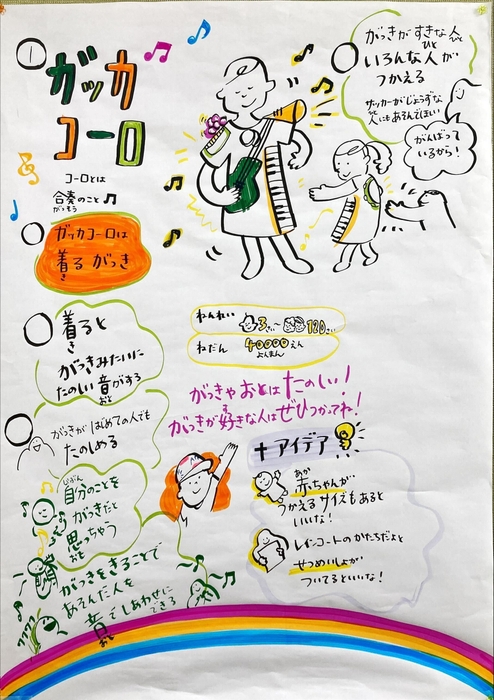 ガッカ
コーロ
コーロとは
合奏のこと
がっそう
ガッカコーロは
着るがっき
き
着ると
き
がっきみたいに
たのしい音がする
おと
がっきがはじめての人でも
たのしめる
自分のことを
じぶん
がっきだと
思っちゃう
おも
がっきをきることで
あえんだ人を
音でしあわせに
できる
おと
がっきがすきな人
ひと
いろんな人が
ひと
つかえる
ザッカーがじょうずな
人にもあそんでほしい
がんばって
いるから!
ねんれい
3さい~120さい
ねだん 40000えん
よんまん
がっきやおとはたのしい!
がっきが好きな人はぜひつかってね!
す
+アイデア
赤ちゃんが
あか
つかえるサイズもあると
いいな!
レインコートのかたちだよと
せつめいしょが
ついてるといいな!